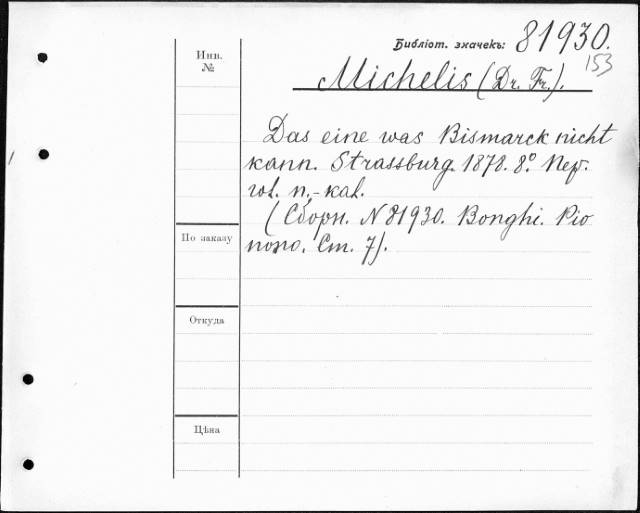 Библіот. значекъ: 81930.
153
Инв. №
Michelis (Dr. Fr.).
Das eine was Bismarck nicht
kann. Strassburg. 1878. 8º. Пер.
гот. п.-кал.
(Сборн. N 81930. Bonghi. Pio
nono. Ст. 7).
По заказу
Откуда
Цѣна